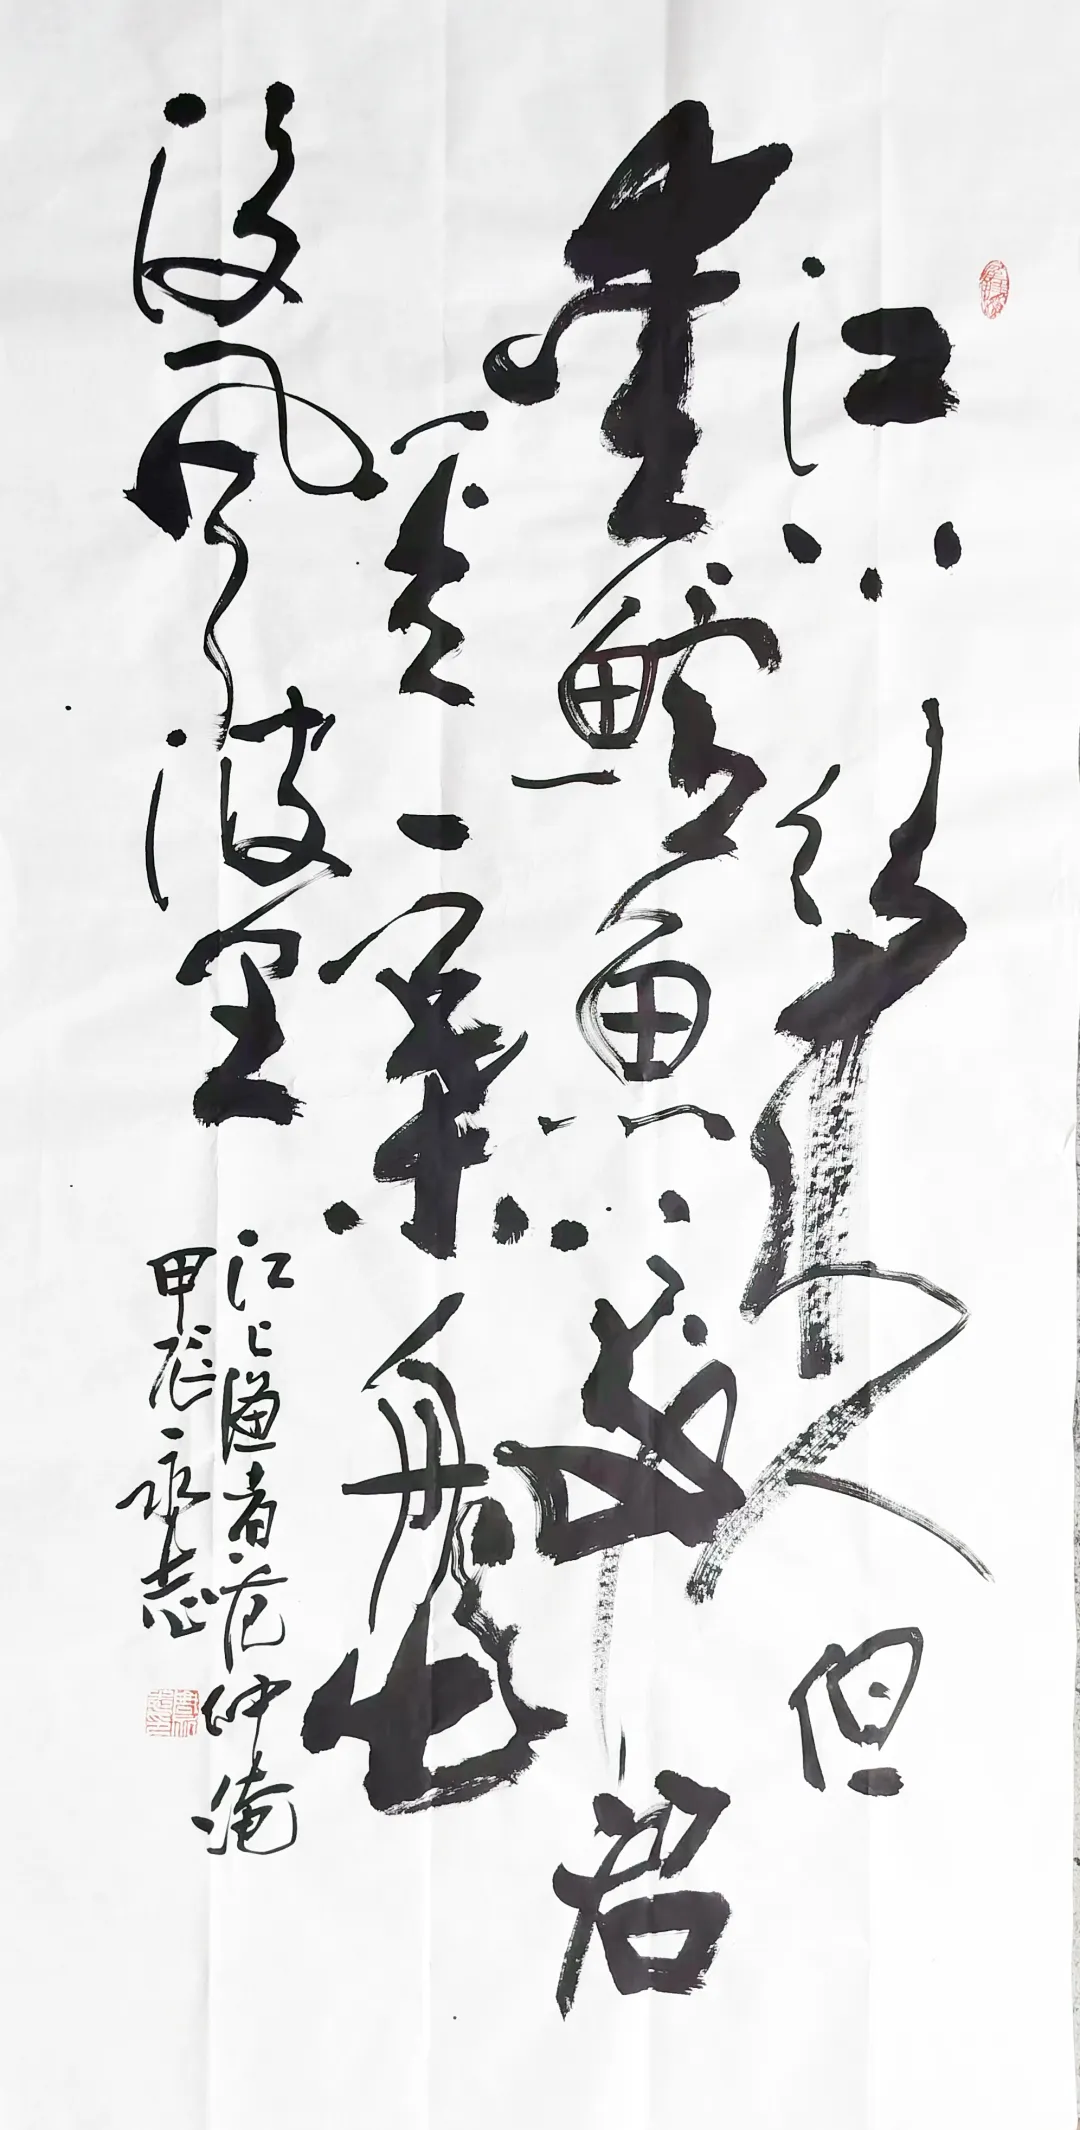 江上往来人但
爱鲈鱼美君
看一葉舟出
没风波里
江上渔者范仲淹
甲辰永志